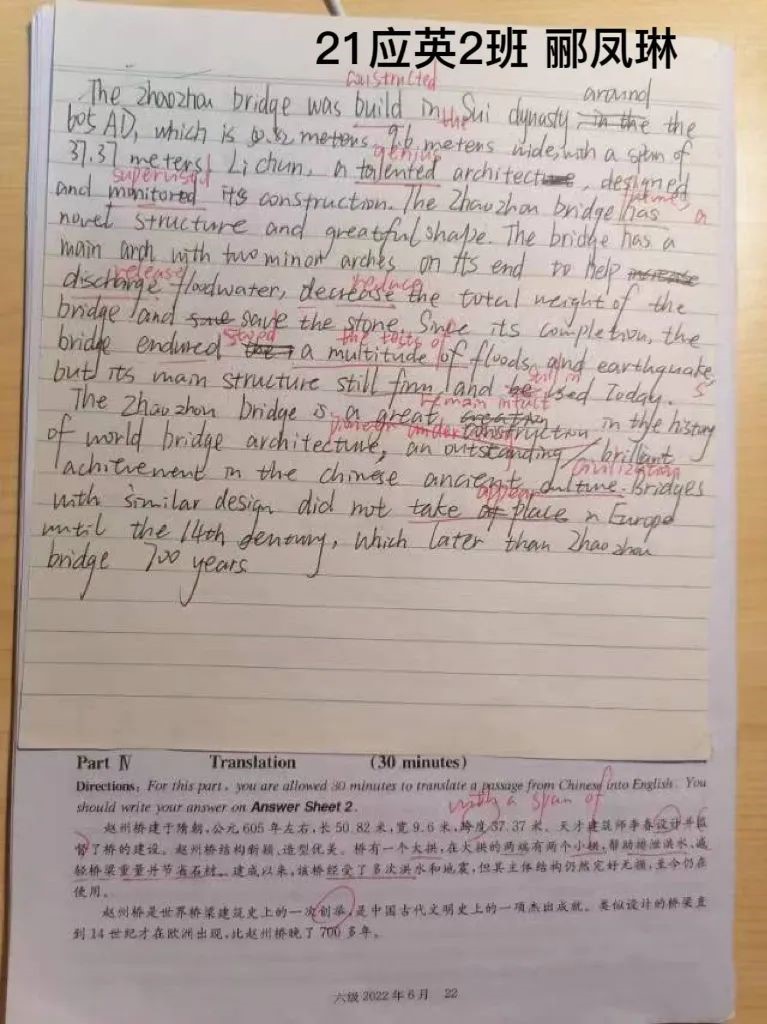 21应英2班 郦凤琳
constructed
around
The Zhaozhou bridge was build in the Sui dynasty in the the
605 AD, which is 50.82 meters, 9.6 meters wide, with a span of
genius
37.37 meters. Li chun, a talented architecture, designed
supervised
and monitored its construction. The Zhaozhou bridge has a
novel structure and greatful shape. The bridge has a
main arch with two minor arches on its end to help increase
release reduce
discharge floodwater, decrease the total weight of the
bridge and save the stone. Since its completion, the
stood the tests of
bridge endured a multitude of floods, and earthquakes
still in
but its main structure still firm and be used Today.
remain intact
The Zhaozhou bridge is a great creation construction in the history
of world bridge architecture, an outstanding / brilliant
civilization
achievement in the chinese ancient culture. Bridges
appear
with similar design did not take of place in Europe
until the 14th century, which later than Zhaozhou
bridge 700 years.
Part Ⅳ Translation (30 minutes)
Directions: For this part, you are allowed 30 minutes to translate a passage from Chinese into English. You
should write your answer on Answer Sheet 2.
with a span of
赵州桥建于隋朝,公元605年左右,长50.82米,宽9.6米,跨度37.37米。天才建筑师李春设计并监
督了桥的建设。赵州桥结构新颖、造型优美。桥有一个大拱,在大拱的两端有两个小拱,帮助排泄洪水、减
轻桥梁重量并节省石材。建成以来,该桥经受了多次洪水和地震,但其主体结构仍然完好无损,至今仍在
使用。
赵州桥是世界桥梁建筑史上的一次创举,是中国古代文明史上的一项杰出成就。类似设计的桥梁直
到14世纪才在欧洲出现,比赵州桥晚了700多年。
六级 2022年6月 22